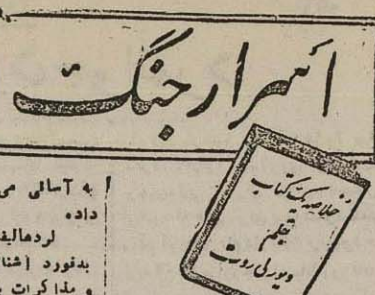 اسرار جنگ
خلاصه یک کتاب
بقلم
به آسانی می
داده
لردهالیف
بدفورد [شنا
و مذاکرات